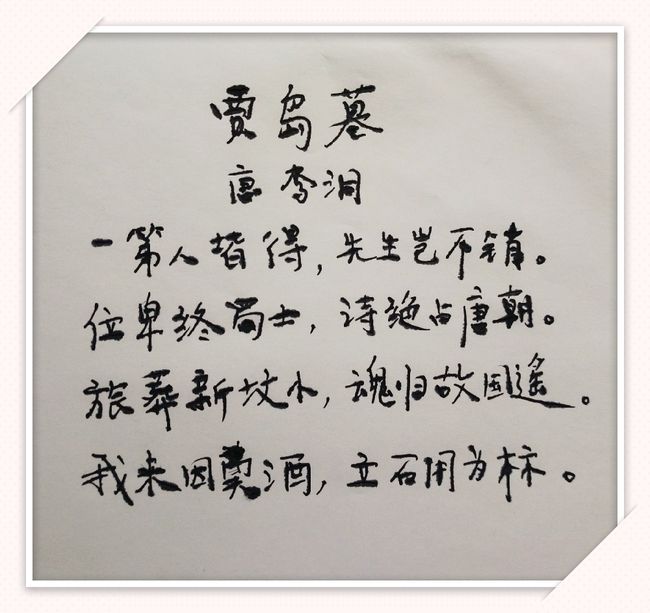 贾岛墓
唐 李洞
一第人皆得，先生岂不销。
位卑终蜀士，诗绝占唐朝。
旅葬新坟小，魂归故国遥。
我来因奠酒，立石用为标。